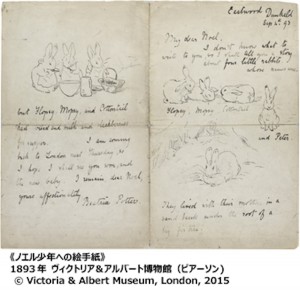 Eastwood
Dunkeld
Sep 4th 93
My dear Noel,
I don't know what to
write to you, so I shall tell you a story
about four little rabbits
whose names were
Flopsy, Mopsy Cottontail
and Peter
They lived with their mother in a
sand bank under the root of a
big fir tree.
but Flopsy, Mopsy, and Cottontail
had bread and milk and blackberries
for supper. I am coming
back to London next Thursday, so
I hope I shall see you soon, and
the new baby. I remain, dear Noel,
yours affectionately
Beatrix Potter
《ノエル少年への絵手紙》
1893年 ヴィクトリア&アルバート博物館（ピアーソン）
© Victoria & Albert Museum, London, 2015